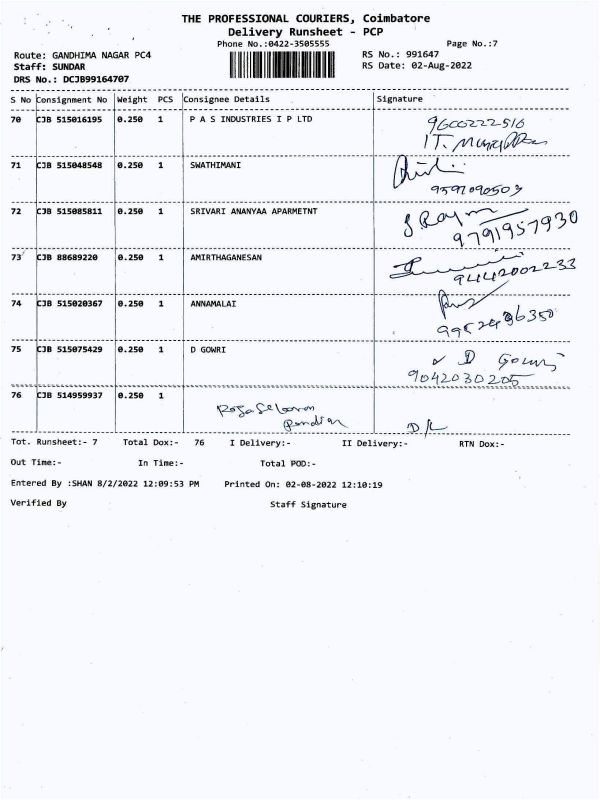 THE PROFESSIONAL COURIERS, Coimbatore
Delivery Runsheet - PCP
Phone No.:0422-3505555 Page No.:7
Route: GANDHIMA NAGAR PC4 RS No.: 991647
Staff: SUNDAR RS Date: 02-Aug-2022
DRS No.: DCJB99164707
S No Consignment No Weight PCS Consignee Details Signature
70 CJB 515016195 0.250 1 P A S INDUSTRIES I P LTD 9600222516
71 CJB 515048548 0.250 1 SWATHIMANI
9597090503
72 CJB 515085811 0.250 1 SRIVARI ANANYAA APARMETNT
9791957930
73 CJB 88689220 0.250 1 AMIRTHAGANESAN
9442002233
74 CJB 515020367 0.250 1 ANNAMALAI
75 CJB 515075429 0.250 1 D GOWRI D Gowri
9042030205
76 CJB 514959937 0.250 1
Pandian D/L
Tot. Runsheet:- 7 Total Dox:- 76 I Delivery:- II Delivery:- RTN Dox:-
Out Time:- In Time:- Total POD:-
Entered By :SHAN 8/2/2022 12:09:53 PM Printed On: 02-08-2022 12:10:19
Verified By Staff Signature